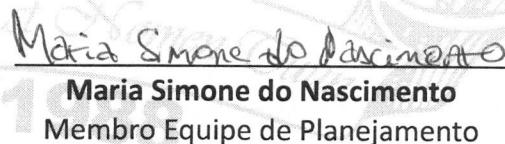 Maria Simone do Nascimento
Maria Simone do Nascimento
Membro Equipe de Planejamento
1989